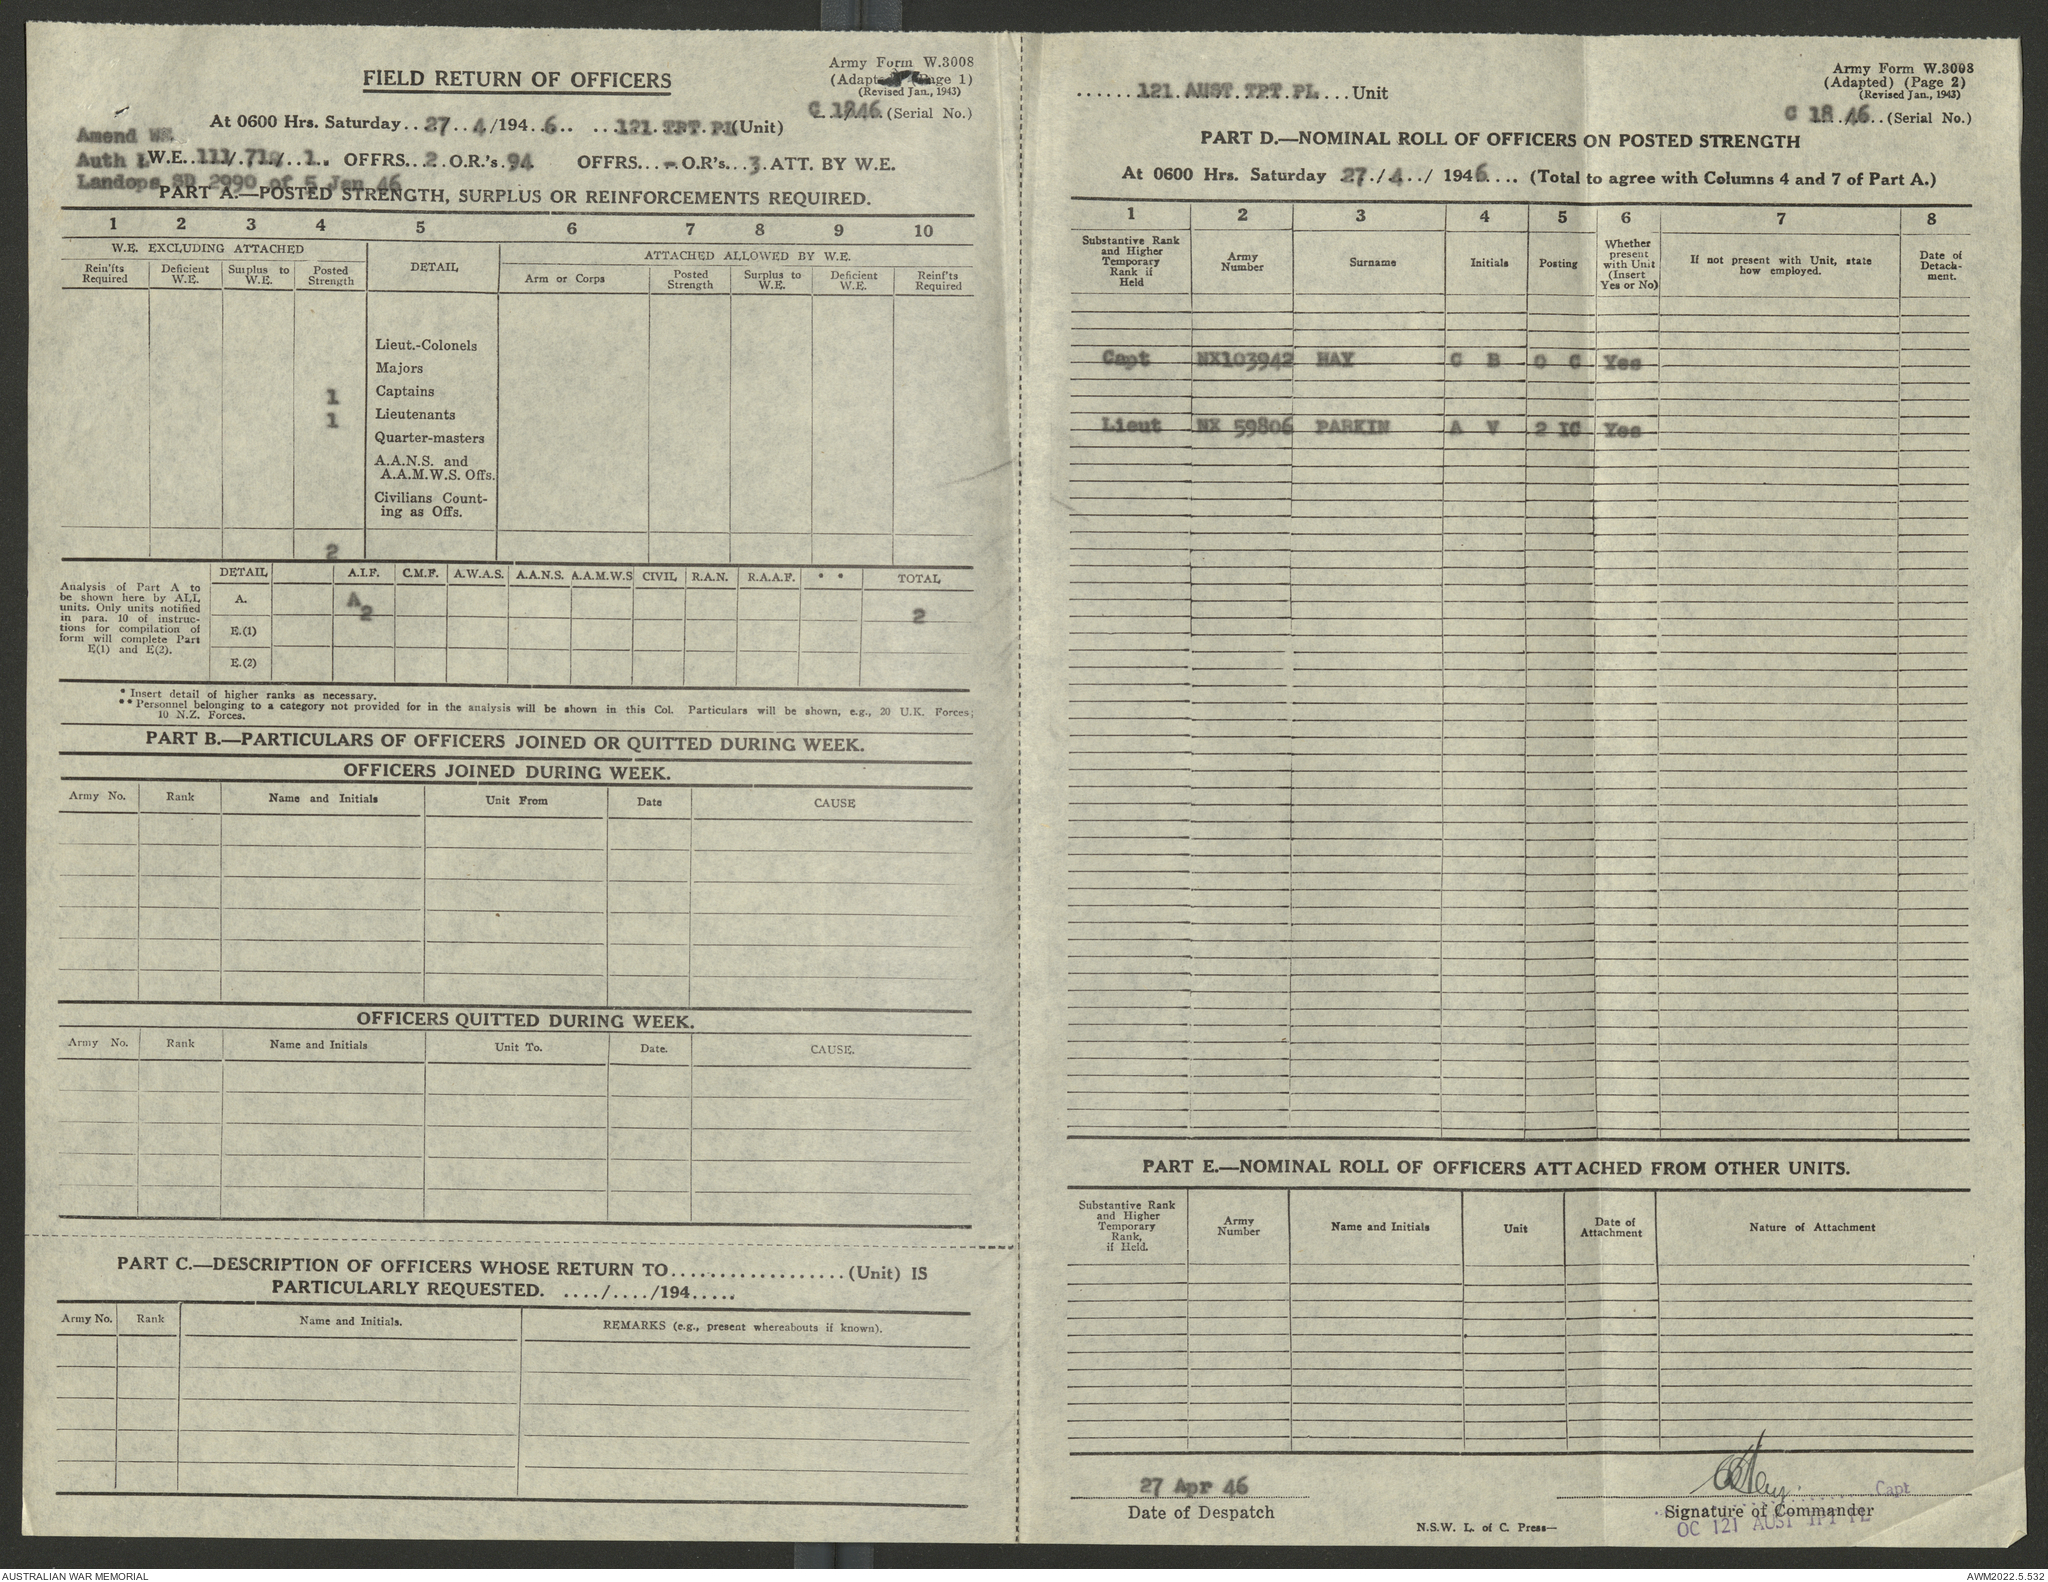 Army Form W.3008
FIELD RETURN OF OFFICERS
(Page 1)
(Revised Jan., 1943)
C 18/46 (Serial No.)
At 0600 Hrs. Saturday..27..4/194..6.. ...121.TPT.Pl(Unit)
Amend WE.
Auth W.E...111/.710/..1.. OFFRS...2.O.R.'s.94 OFFRS...-.O.R's...3.ATT. BY W.E.
Landops SD 2990 of 5 Jan 46
PART A.—POSTED STRENGTH, SURPLUS OR REINFORCEMENTS REQUIRED.
1 2 3 4 5 6 7 8 9 10
W.E. EXCLUDING ATTACHED DETAIL ATTACHED ALLOWED BY W.E.
Rein'fts Required Deficient W.E. Surplus to W.E. Posted Strength Arm or Corps Posted Strength Surplus to W.E. Deficient W.E. Reinf'ts Required
Lieut.-Colonels
Majors
1 Captains
1 Lieutenants
Quarter-masters
A.A.N.S. and
A.A.M.W.S. Offs.
Civilians Count-
ing as Offs.
2
Analysis of Part A to
be shown here by ALL
units. Only units notified
in para. 10 of instruc-
tions for compilation of
form will complete Part
E(1) and E(2).
DETAIL A.I.F. C.M.F. A.W.A.S. A.A.N.S. A.A.M.W.S CIVIL R.A.N. R.A.A.F. * * TOTAL
A. A 2 2
E.(1)
E.(2)
* Insert detail of higher ranks as necessary.
** Personnel belonging to a category not provided for in the analysis will be shown in this Col. Particulars will be shown, e.g., 20 U.K. Forces;
10 N.Z. Forces.
PART B.—PARTICULARS OF OFFICERS JOINED OR QUITTED DURING WEEK.
OFFICERS JOINED DURING WEEK.
Army No. Rank Name and Initials Unit From Date CAUSE
OFFICERS QUITTED DURING WEEK.
Army No. Rank Name and Initials Unit To. Date. CAUSE.
PART C.—DESCRIPTION OF OFFICERS WHOSE RETURN TO.................. (Unit) IS
PARTICULARLY REQUESTED. ..../..../194.....
Army No. Rank Name and Initials. REMARKS (e.g., present whereabouts if known).
Army Form W.3008
(Adapted) (Page 2)
(Revised Jan., 1943)
......121.AUST.TPT.PL...Unit
C 18..46..(Serial No.)
PART D.—NOMINAL ROLL OF OFFICERS ON POSTED STRENGTH
At 0600 Hrs. Saturday 27./4../ 1946.... (Total to agree with Columns 4 and 7 of Part A.)
1 2 3 4 5 6 7 8
Substantive Rank and Higher Temporary Rank if Held Army Number Surname Initials Posting Whether present with Unit (Insert Yes or No) If not present with Unit, state how employed. Date of Detach-ment.
Capt NX103942 HAY C B O C Yes
Lieut NX 59806 PARKIN A V 2 IC Yes
PART E.—NOMINAL ROLL OF OFFICERS ATTACHED FROM OTHER UNITS.
Substantive Rank and Higher Temporary Rank, if Held. Army Number Name and Initials Unit Date of Attachment Nature of Attachment
27 Apr 46
Date of Despatch
CBHay. Capt
Signature of Commander
OC 121 AUST TPT PL
N.S.W. L. of C. Press—
AUSTRALIAN WAR MEMORIAL
AWM2022.5.532